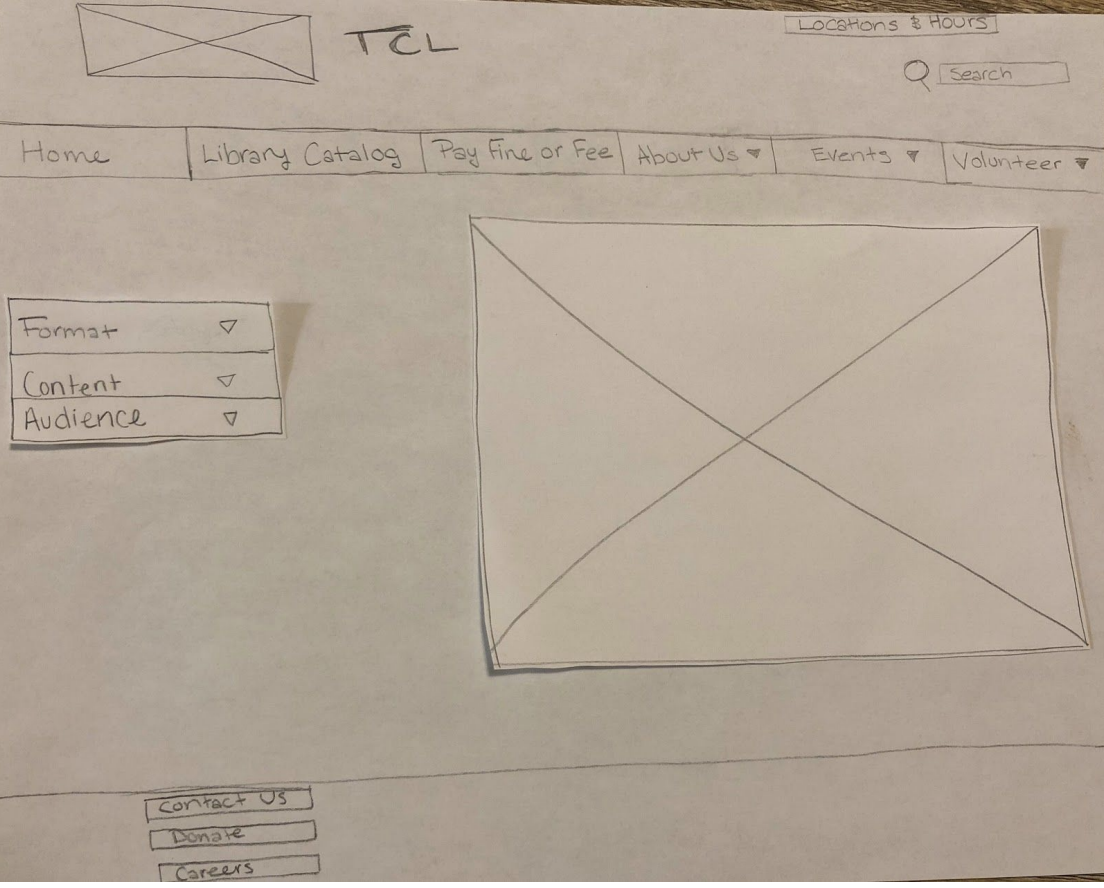 TCL
Locations & Hours
Search
Home Library Catalog Pay Fine or Fee About Us Events Volunteer
Format
Content
Audience
Contact Us
Donate
Careers